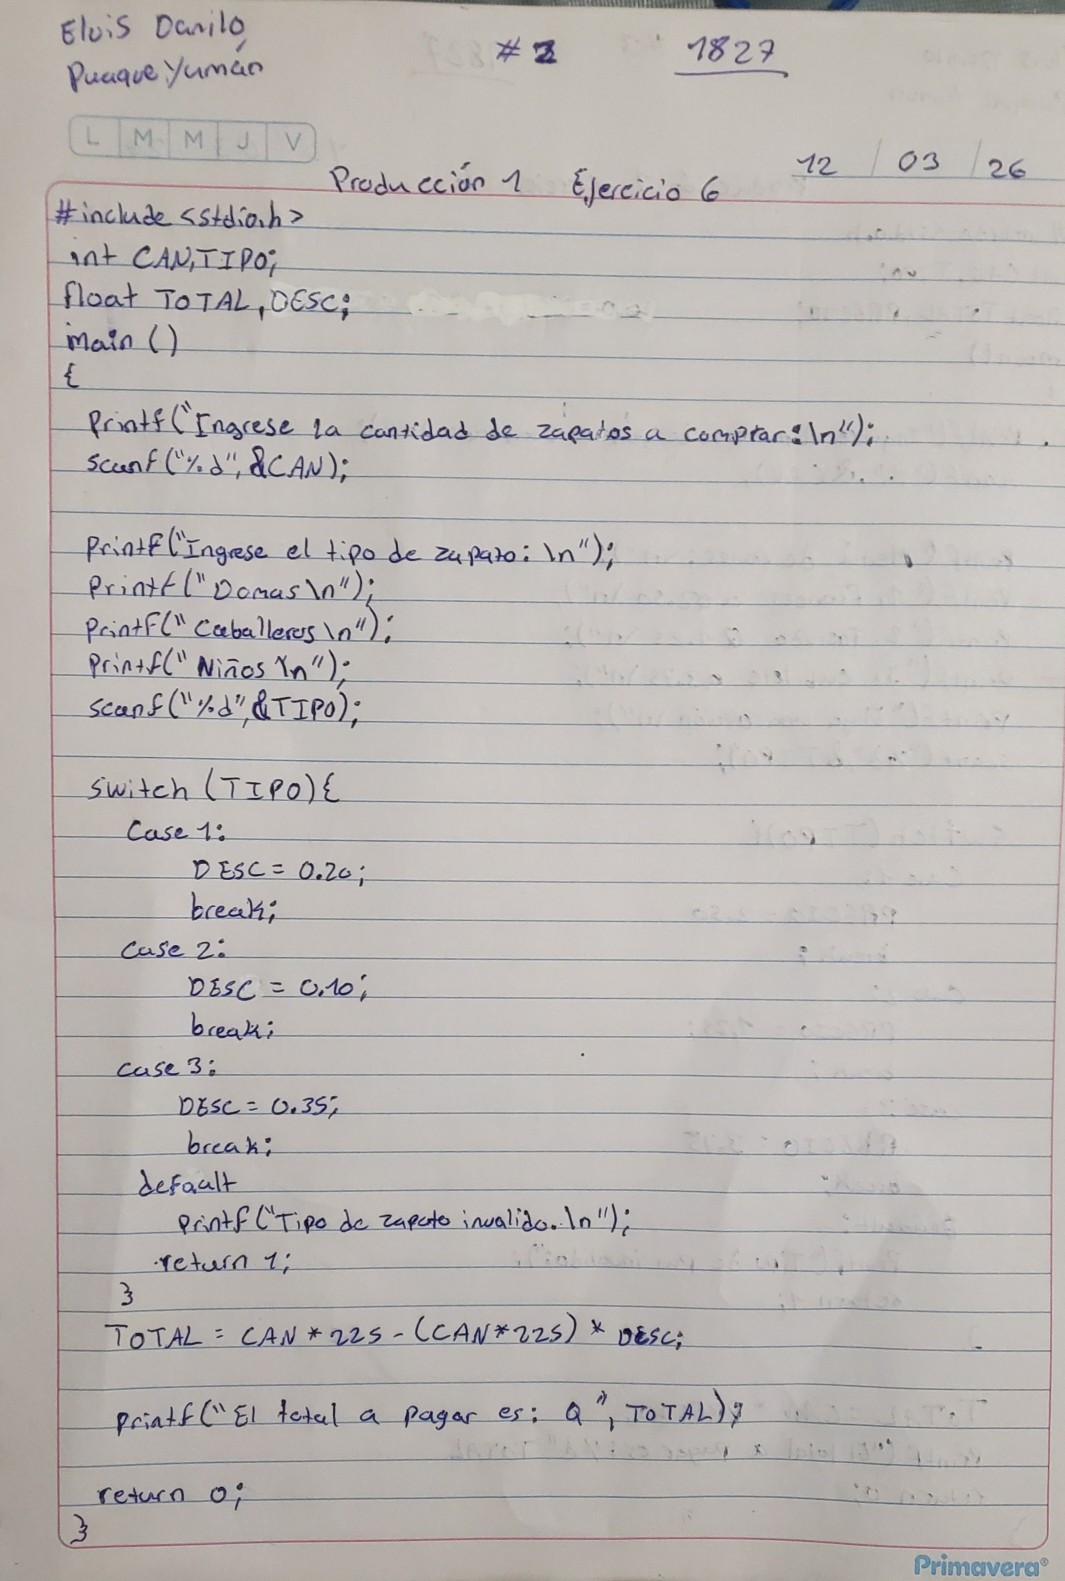 Elvis Danilo
Puaque Yumán
#2
1827
L M M J V
12 / 03 / 26
Producción 1 Ejercicio 6
#include <stdio.h>
int CAN,TIPO;
float TOTAL,DESC;
main ()
{
Printf("Ingrese la cantidad de zapatos a comprar:\n");
scanf("%d",&CAN);
Printf("Ingrese el tipo de zapato: \n");
Printf("Damas\n");
Printf("Caballeros\n");
Printf("Niños \n");
scanf("%d",&TIPO);
switch (TIPO){
Case 1:
DESC = 0.20;
break;
Case 2:
DESC = 0.10;
break;
case 3:
DESC = 0.35;
break;
default
printf("Tipo de zapato invalido.\n");
return 1;
}
TOTAL = CAN * 225 - (CAN*225) * DESC;
printf("El total a pagar es: Q", TOTAL);
return 0;
}
Primavera®